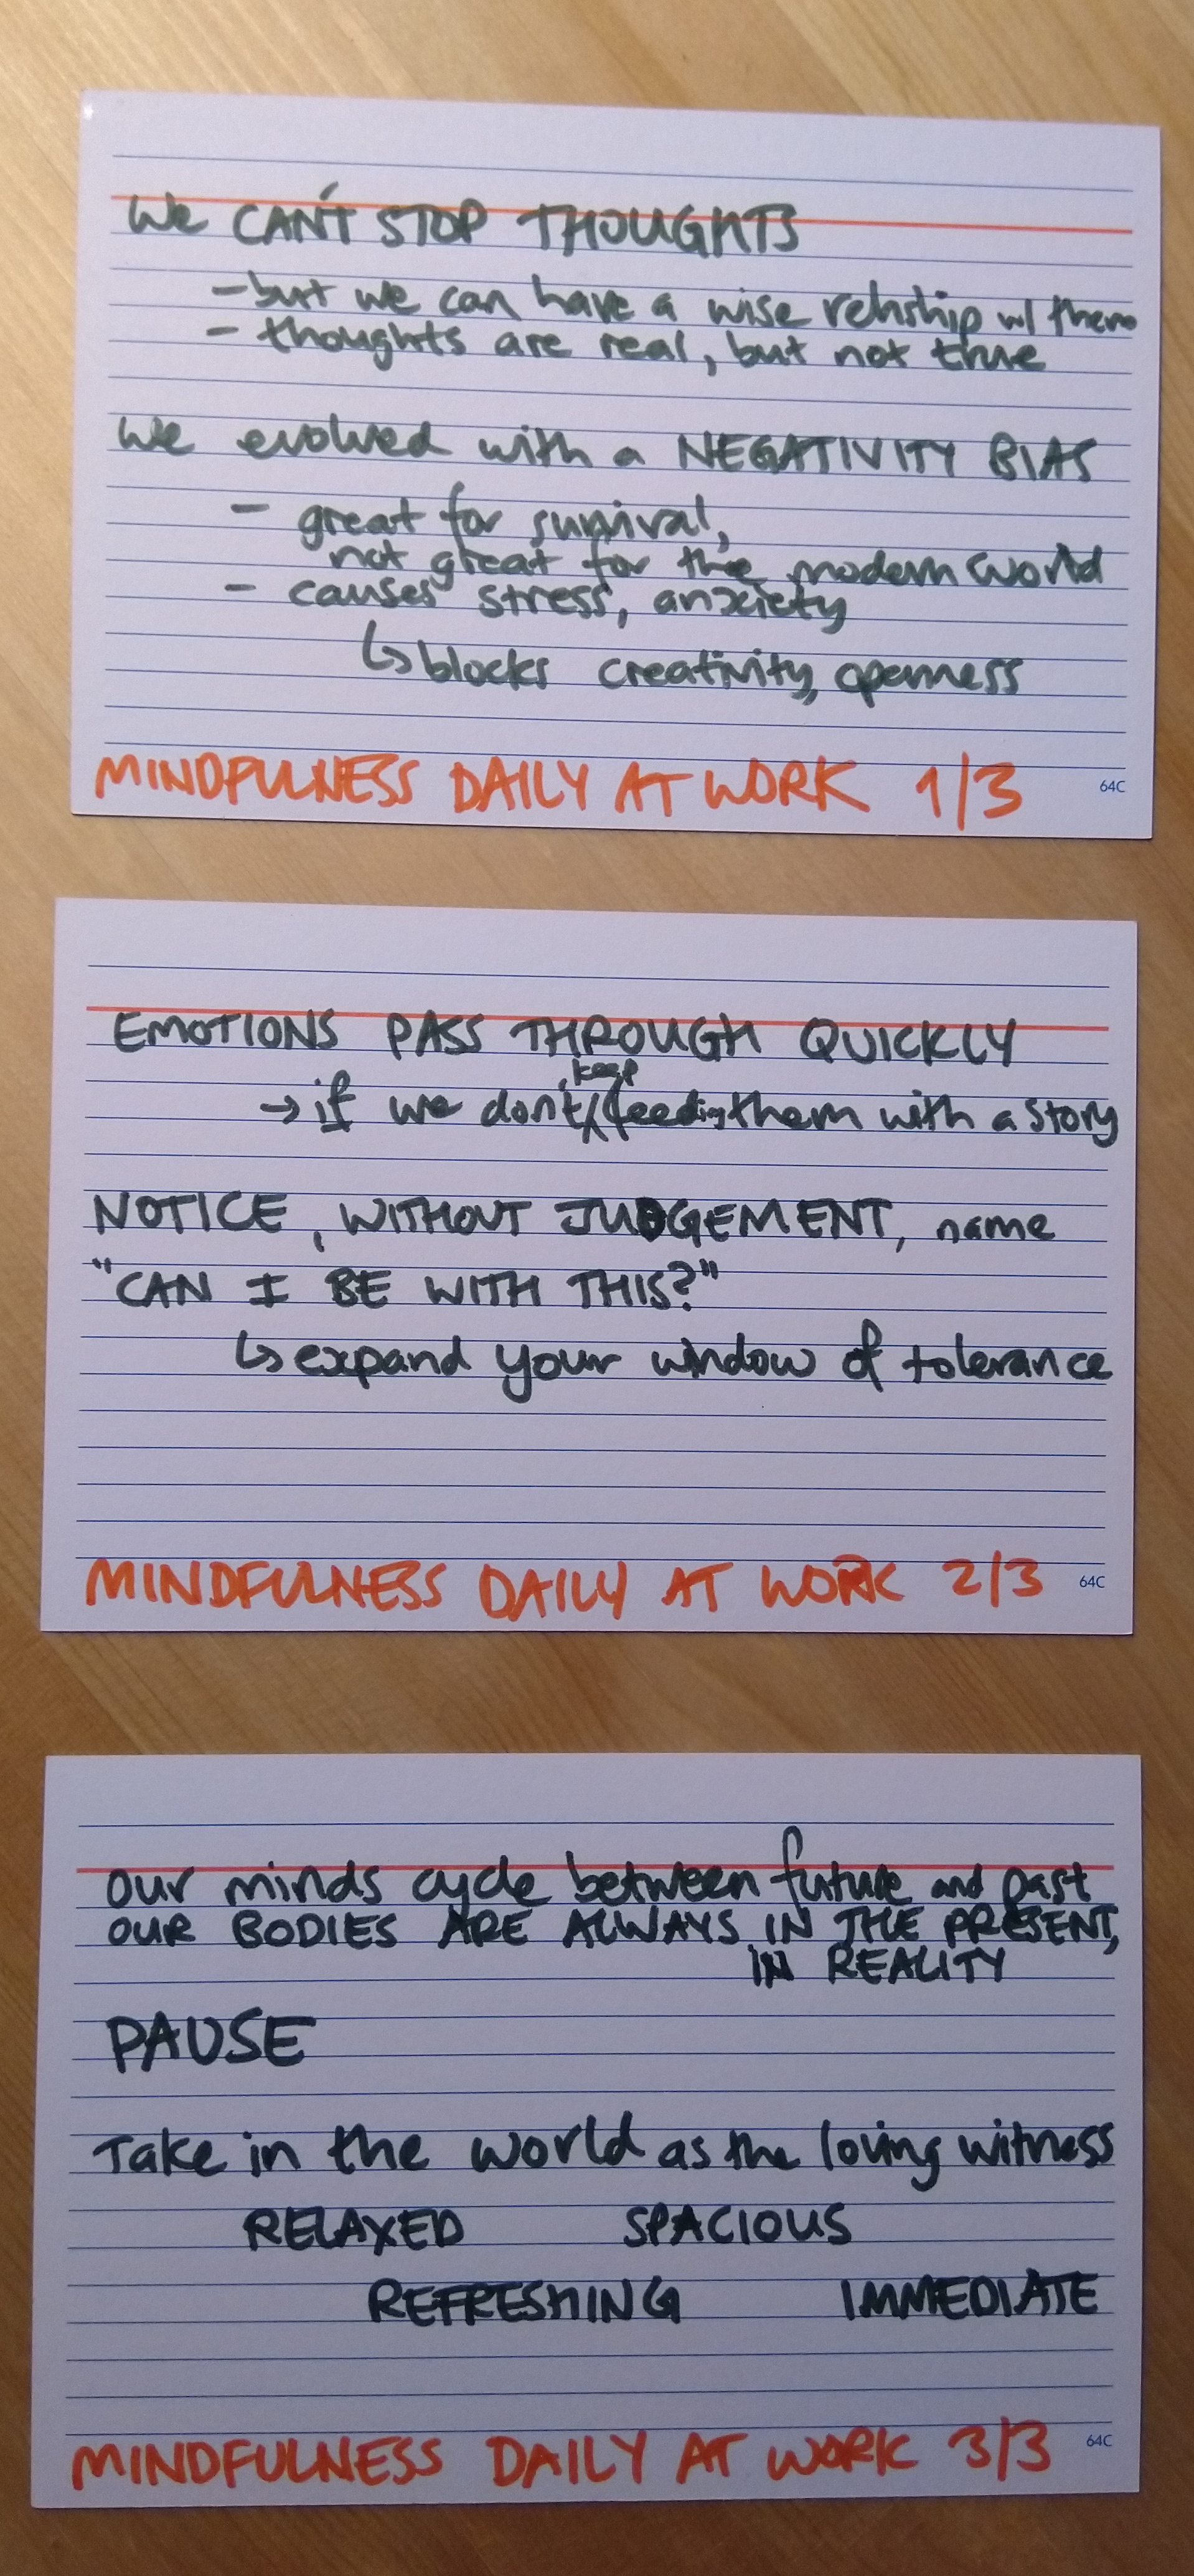 We CAN'T STOP THOUGHTS
- but we can have a wise relnship w/ them
- thoughts are real, but not true
We evolved with a NEGATIVITY BIAS
- great for survival,
not great for the modern world
- causes stress, anxiety
↳ blocks creativity, openness
MINDFULNESS DAILY AT WORK 1/3
64C
EMOTIONS PASS THROUGH QUICKLY
keep
→ if we don't feeding them with a story
NOTICE, WITHOUT JUDGEMENT, name
"CAN I BE WITH THIS?"
↳ expand your window of tolerance
MINDFULNESS DAILY AT WORK 2/3
64C
our minds cycle between future and past
OUR BODIES ARE ALWAYS IN THE PRESENT,
IN REALITY
PAUSE
Take in the world as the loving witness
RELAXED SPACIOUS
REFRESHING IMMEDIATE
MINDFULNESS DAILY AT WORK 3/3
64C